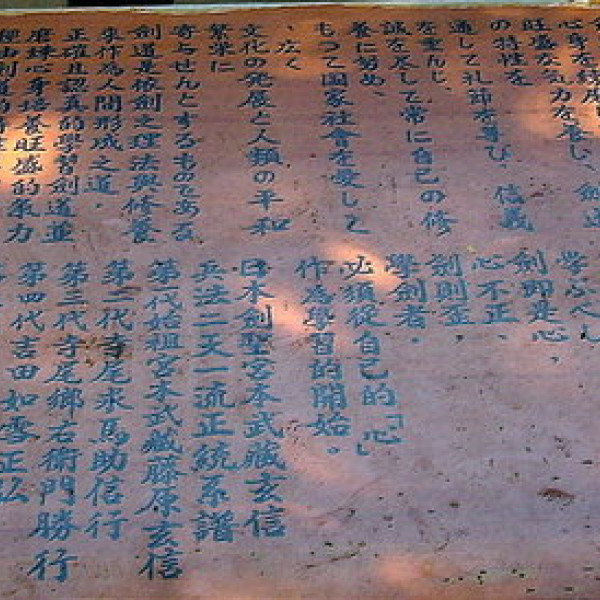 心身を錬磨
旺盛な気力を養し、劍道
の特性を
通して礼節を尊び、信義
を重んじ、
誠を尽して常に自己の修
養に努め、
もつて国家社會を愛して
、広く
文化の発展と人類の平和
繁栄に
寄与せんとするものである
劍道是依劍之理法與修養
來作為人間形成之道.
正確且認真的學習劍道並
磨練心身培養旺盛的氣力
經由劍道的特性
学ふべし
劍即是心,
心不正、
劍則歪
學劍者.
必須從自己的「心」
作為學習的開始。
日本劍聖宮本武藏玄信
兵法二天一流正統系譜
第一代始祖宮本武藏藤原玄信
第二代寺尾求馬助信行
第三代寺尾鄉右衛門勝行
第四代吉田如雪正弘